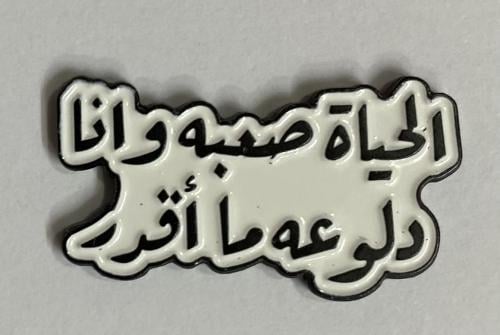 الحياة صعبه وانا
دلوعه ما أقدر